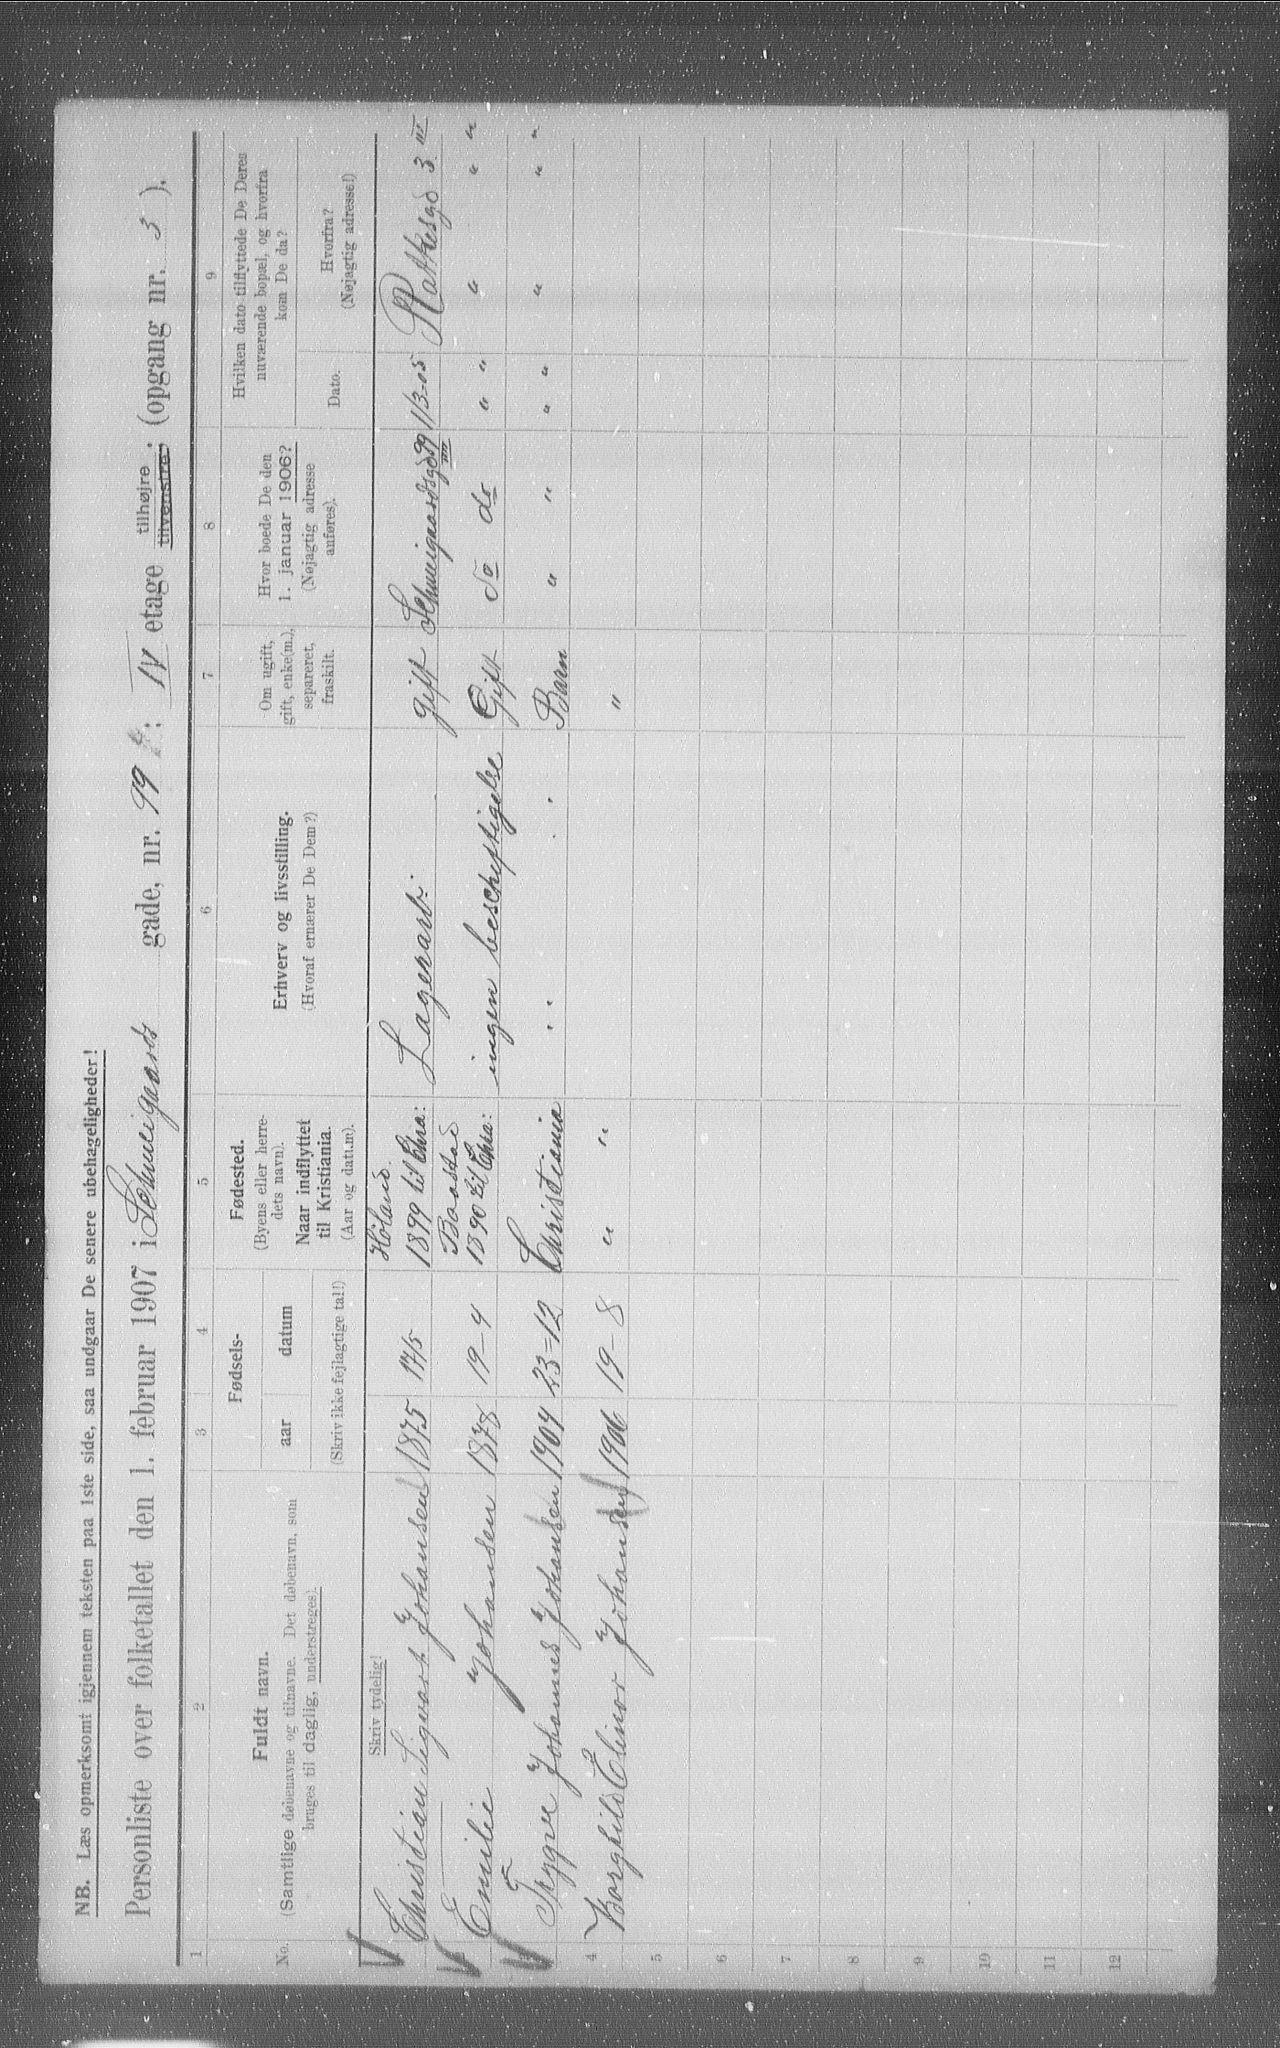 NB. Læs opmerksomt igjennem teksten paa 1ste side, saa undgaar De senere ubehageligheder!
Personliste over folketallet den 1. februar 1907 i Schweigaards gade, nr. 99; IV etage tilhøjre tilvenstre, (opgang nr. 3).
1 2 3 4 5 6 7 8 9
No.
Fuldt navn.
(Samtlige døbenavne og tilnavne. Det døbenavn, som
bruges til daglig, understreges).
Skriv tydelig!
Fødsels-
aar datum
(Skriv ikke fejlagtige tal!)
Fødested.
(Byens eller herre-
dets navn).
Naar indflyttet
til Kristiania.
(Aar og datum).
Erhverv og livsstilling.
(Hvoraf ernærer De Dem?)
Om ugift,
gift, enke(m.),
separeret,
fraskilt.
Hvor boede De den
1. januar 1906?
(Nøjagtig adresse
anføres).
Hvilken dato tilflyttede De Deres
nuværende bopæl, og hvorfra
kom De da?
Dato.
Hvorfra?
(Nøjagtig adresse!)
Christian Sigvart Johansen 1875 17/5 Höland. 1899 til Chra: Lagerarb: gift Schweigaardsgd 99 III 1/3-05 Rathkesgd 3 III
Emilie Johansen 1878 19-4 Baastad 1890 til Chra: ingen beschjeftigelse Gift do do " " " " "
Trygve Johannes Johansen 1904 23-12 Christiania " " Barn " " " " " " "
4 Borghild Elinor Johansen 1906 19-8 " " "
5
6
7
8
9
10
11
12